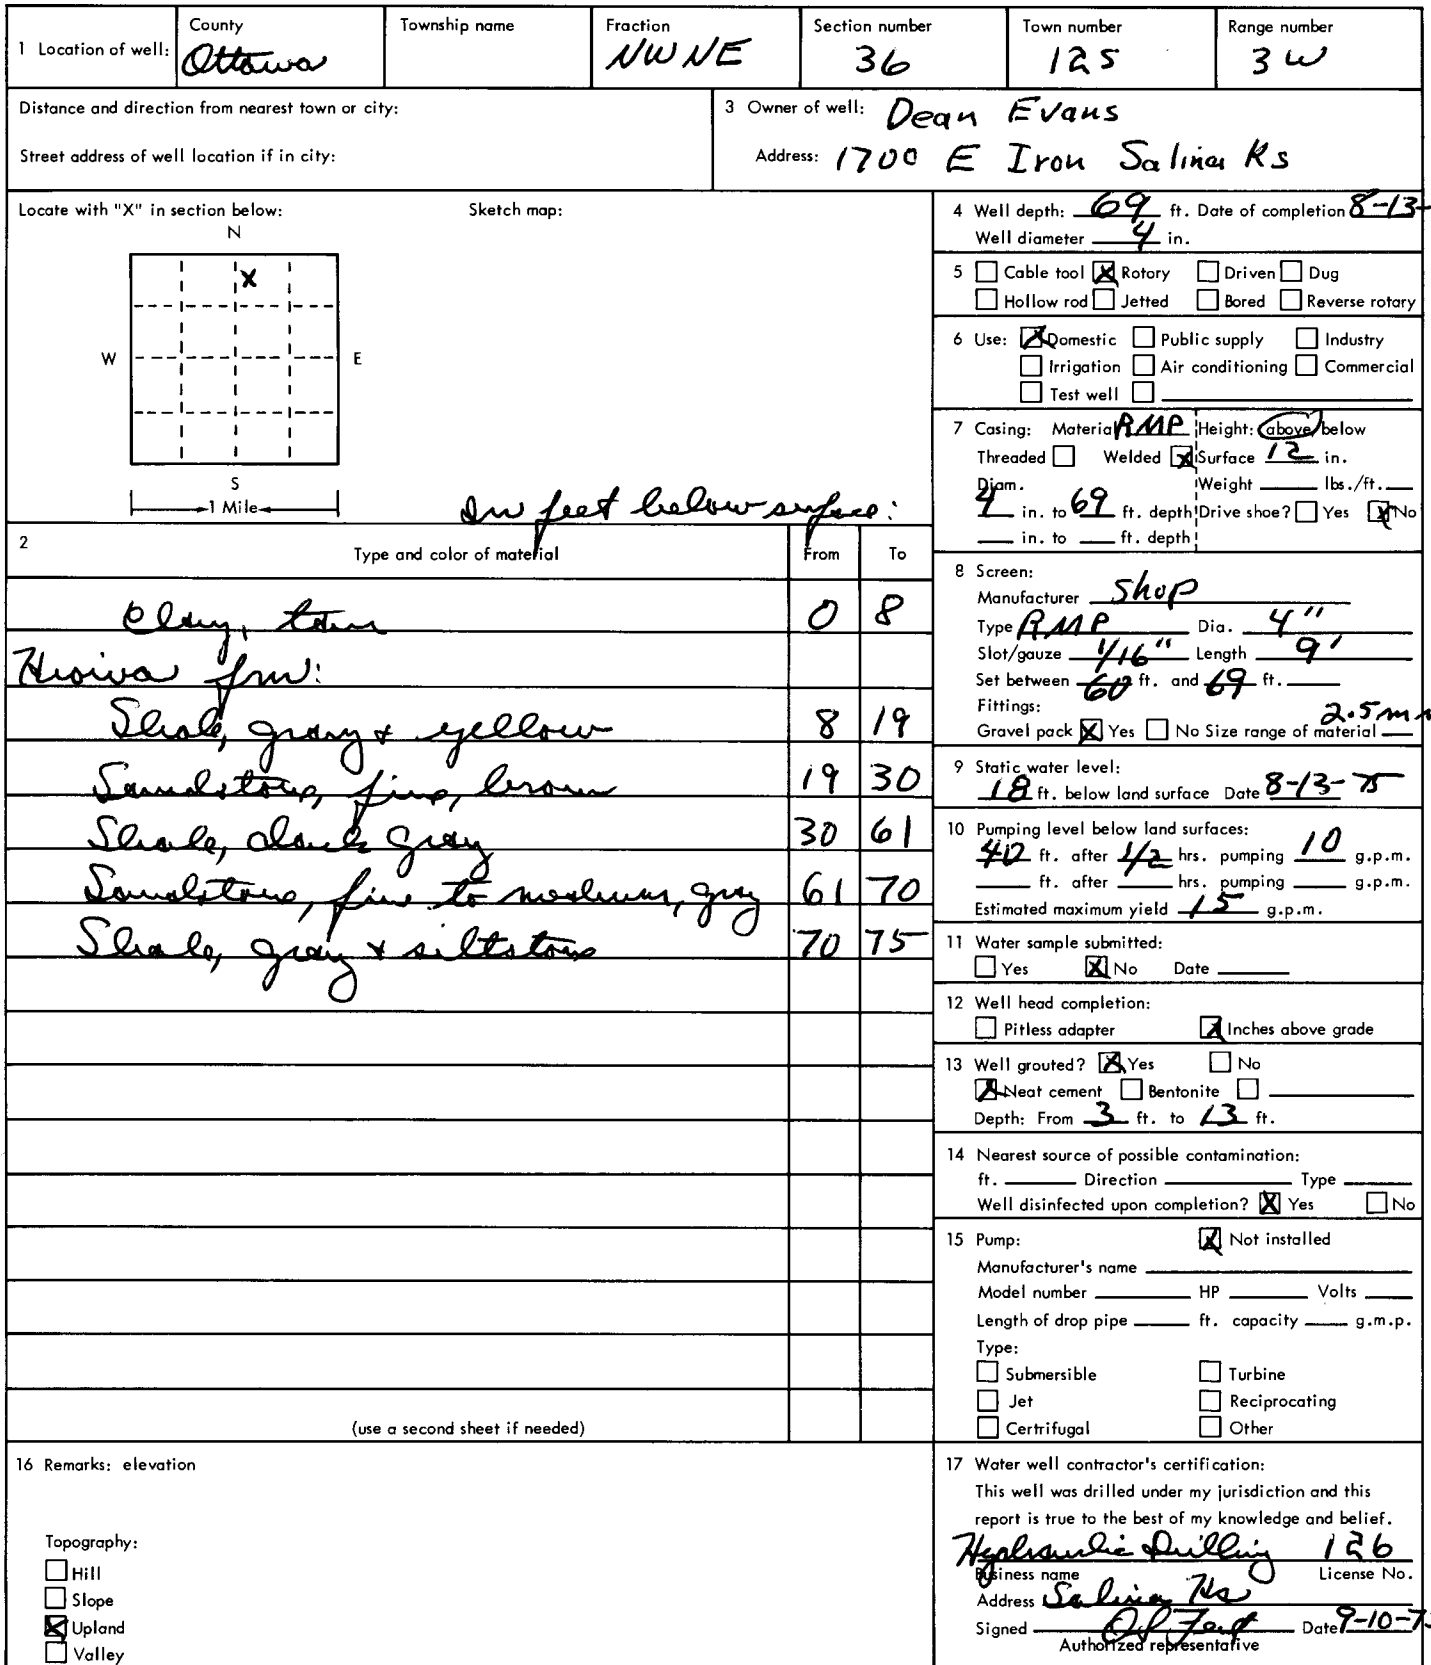 1 Location of well: County Township name Fraction Section number Town number Range number
Ottawa NW NE 36 12S 3W
Distance and direction from nearest town or city:
Street address of well location if in city:
3 Owner of well: Dean Evans
Address: 1700 E Iron Salina Ks
Locate with "X" in section below: Sketch map:
N
X
W E
S
1 Mile
In feet below surface:
2 Type and color of material From To
Clay, tan 0 8
Kiowa fm:
Shale, gray & yellow 8 19
Sandstone, fine, brown 19 30
Shale, dark gray 30 61
Sandstone, fine to medium, gray 61 70
Shale, gray & siltstone 70 75
(use a second sheet if needed)
16 Remarks: elevation
Topography:
Hill
Slope
X Upland
Valley
4 Well depth: 69 ft. Date of completion 8-13-
Well diameter 4 in.
5 Cable tool X Rotory Driven Dug
Hollow rod Jetted Bored Reverse rotary
6 Use: X Domestic Public supply Industry
Irrigation Air conditioning Commercial
Test well
7 Casing: Material RMP Height: above/below
Threaded Welded X Surface 12 in.
Diam. Weight lbs./ft.
4 in. to 69 ft. depth Drive shoe? Yes X No
in. to ft. depth
8 Screen:
Manufacturer Shop
Type RMP Dia. 4"
Slot/gauze 1/16" Length 9'
Set between 60 ft. and 69 ft.
Fittings:
Gravel pack X Yes No Size range of material 2.5 m
9 Static water level:
18 ft. below land surface Date 8-13-75
10 Pumping level below land surfaces:
40 ft. after 1/2 hrs. pumping 10 g.p.m.
ft. after hrs. pumping g.p.m.
Estimated maximum yield 15 g.p.m.
11 Water sample submitted:
Yes X No Date
12 Well head completion:
Pitless adapter X Inches above grade
13 Well grouted? X Yes No
X Neat cement Bentonite
Depth: From 3 ft. to 13 ft.
14 Nearest source of possible contamination:
ft. Direction Type
Well disinfected upon completion? X Yes No
15 Pump: X Not installed
Manufacturer's name
Model number HP Volts
Length of drop pipe ft. capacity g.m.p.
Type:
Submersible Turbine
Jet Reciprocating
Certrifugal Other
17 Water well contractor's certification:
This well was drilled under my jurisdiction and this
report is true to the best of my knowledge and belief.
Hydraulic Drilling 126
Business name License No.
Address Salina Ks
Signed Date 9-10-7
Authorized representative